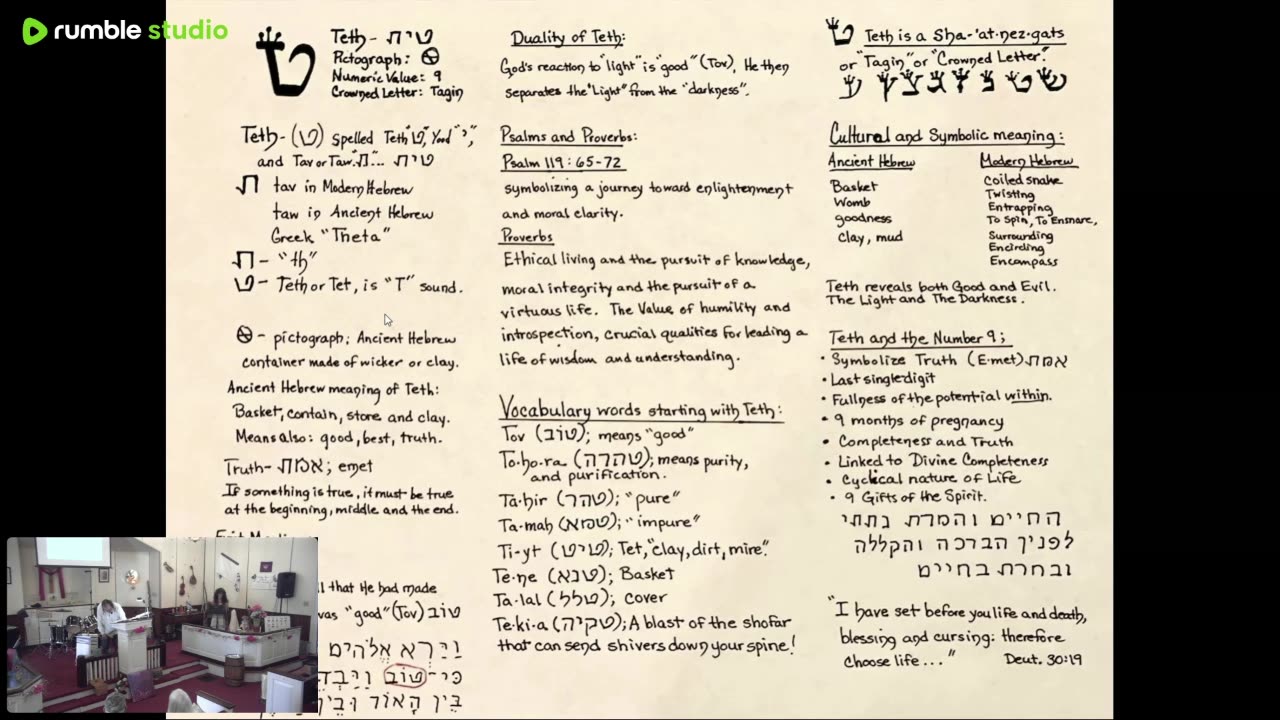 rumble studio
ט Teth - טית
Pictograph: ⊗
Numeric Value: 9
Crowned Letter: Tagin
Teth - (ט) spelled Teth "ט", Yood "י",
and Tav or Taw "ת"... טית
ת tav in Modern Hebrew
taw in Ancient Hebrew
Greek "Theta"
ת - "th"
ט - Teth or Tet, is "T" sound.
⊗ - pictograph; Ancient Hebrew
container made of wicker or clay.
Ancient Hebrew meaning of Teth:
Basket, contain, store and clay.
Means also: good, best, truth.
Truth - אמת; emet
If something is true, it must be true
at the beginning, middle and the end.
that He had made
was "good" (Tov) טוֹב
וַיַּרְא אֱלֹהִים
כִּי־טוֹב וַיַּבְדֵּ
בֵּין הָאוֹר וּבֵין
Duality of Teth:
God's reaction to "light" is "good" (Tov), He then
separates the "Light" from the "darkness".
Psalms and Proverbs:
Psalm 119:65-72
symbolizing a journey toward enlightenment
and moral clarity.
Proverbs
Ethical living and the pursuit of knowledge,
moral integrity and the pursuit of a
virtuous life. The Value of humility and
introspection, crucial qualities for leading a
life of wisdom and understanding.
Vocabulary words starting with Teth:
Tov (טוֹב); means "good"
To·ho·ra (טהרה); means purity,
and purification.
Ta·hir (טהר); "pure"
Ta·mah (טמא); "impure"
Ti-yt (טיט); Tet, "clay, dirt, mire".
Te·ne (טנא); Basket
Ta·lal (טלל); cover
Te·ki·a (טקיה); A blast of the shofar
that can send shivers down your spine!
ט Teth is a Sha-'at·nez·gats
or "Tagin" or "Crowned Letter".
שטנזגצע
Cultural and Symbolic meaning:
Ancient Hebrew
Basket
Womb
goodness
clay, mud
Modern Hebrew
Coiled snake
Twisting
Entrapping
To Spin, To Ensnare,
Surrounding
Encircling
Encompass
Teth reveals both Good and Evil.
The Light and The Darkness.
Teth and the Number 9;
• Symbolize Truth (E·met) אמת
• Last single-digit
• Fullness of the potential within.
• 9 months of pregnancy
• Completeness and Truth
• Linked to Divine Completeness
• Cyclical nature of Life
• 9 Gifts of the Spirit.
החיים והמרת נתתי
לפניך הברכה והקללה
ובחרת בחיים
"I have set before you life and death,
blessing and cursing: therefore
choose life..." Deut. 30:19